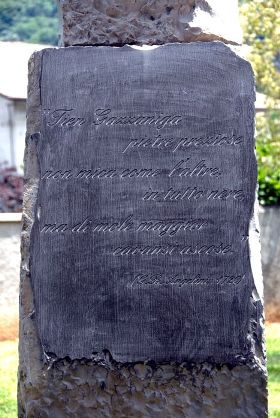 "Tien Gazzaniga
pietre preziose
non mica come l'altre,
in tutto nere,
ma di mole maggior
ascose."